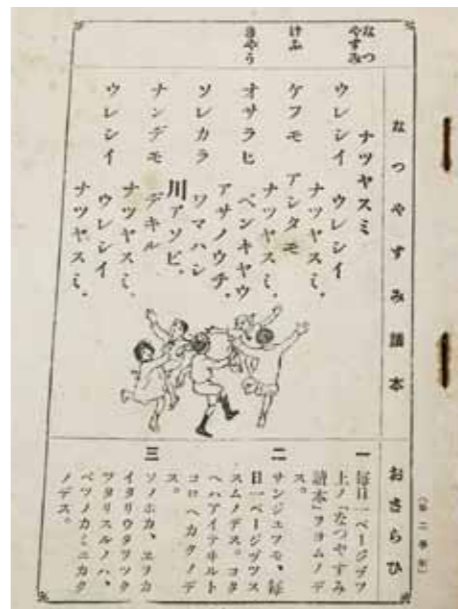 なつやすみ讀本
なつ
やすみ
けふ
きやう
ナツヤスミ
ウレシイ ウレシイ
ナツヤスミ。
ケフモ アシタモ
ナツヤスミ。
オサラヒ ベンキヤウ
アサノウチ。
ソレカラ ワマハシ
川アソビ。
ナンデモ デキル
ナツヤスミ。
ウレシイ ウレシイ
ナツヤスミ。
おさらひ
(第二學年)
一 毎日一ページヅツ
上ノ「なつやすみ
讀本」ヲヨムノデ
ス。
二 サンジユツモ、毎
日一ページヅツス
スムノデス。コタ
ヘハアイテヰルト
コロヘカクノデ
ス。
三 ソノホカ、エヲカ
イタリウタヲツク
ツタリスルノハ、
ベツノカミニカク
ノデス。